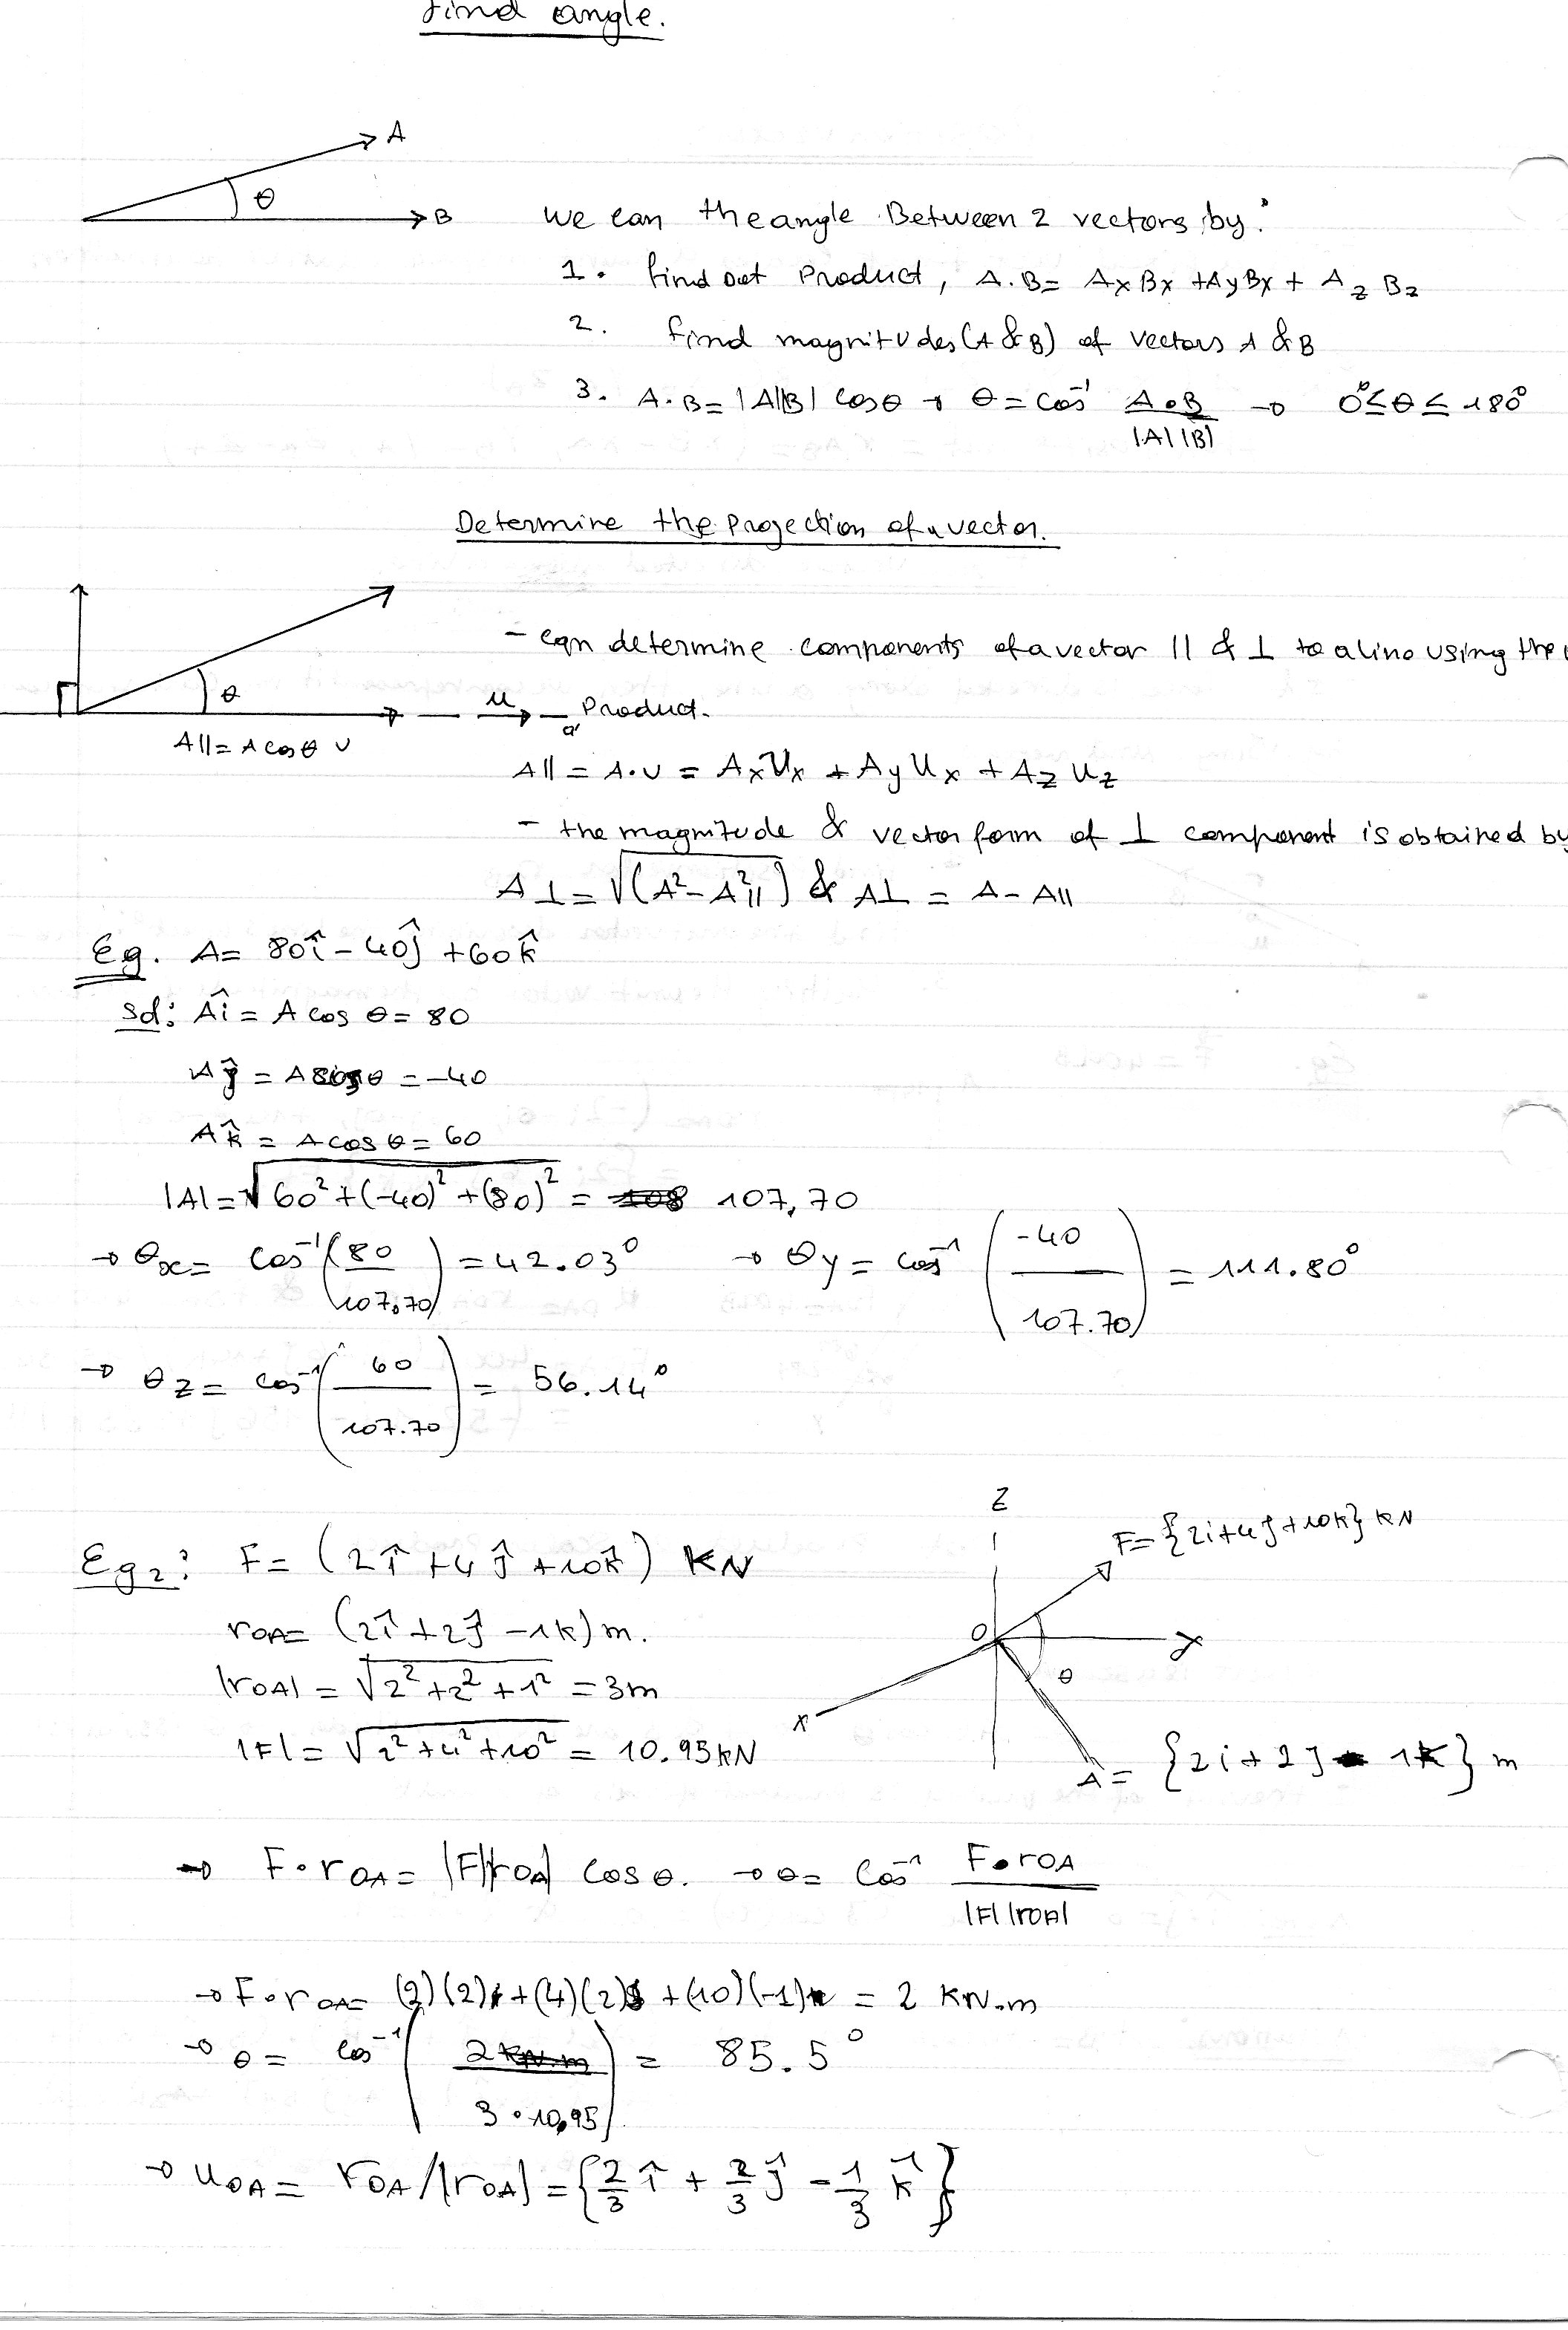 find angle.
A
θ
B
we can the angle Between 2 vectors by:
1. find dot Product, A.B= AxBx +AyBx + AzBz
2. find magnitudes (A & B) of vectors A & B
3. A.B= |A||B| cosθ → θ = cos⁻¹ A∘B / |A||B| → 0°≤θ≤ 180°
Determine the Projection of a vector.
- can determine components of a vector || & ⊥ to a line using the
θ
u
a'
Product.
A|| = A cosθ u
A|| = A.u = AxUx + AyUx + AzUz
- the magnitude & vector form of ⊥ component is obtained by
A⊥ = √(A² - A²||) & A⊥ = A - A||
Eg. A= 80î - 40ĵ + 60k̂
Sol: Aî = A cos θ = 80
Aĵ = A cosθ = -40
Ak̂ = A cos θ = 60
|A| = √60² + (-40)² + (80)² = 107,70
→ θx = cos⁻¹(80 / 107,70) = 42.03° → θy = cos⁻¹(-40 / 107.70) = 111.80°
→ θz = cos⁻¹(60 / 107.70) = 56.14°
Eg2: F = (2î + 4ĵ + 10k̂) KN
Z
F= {2i+4j+10k} KN
rOA= (2î + 2ĵ - 1k) m.
O
y
|rOA| = √2² + 2² + 1² = 3m
θ
x
|F| = √2² + 4² + 10² = 10.95kN
A = {2i + 2j - 1k} m
→ F∘rOA = |F||rOA| cos θ. → θ = cos⁻¹ F∘rOA / |F||rOA|
→ F∘rOA= (2)(2) + (4)(2) + (10)(-1) = 2 KN.m
→ θ = cos⁻¹(2 KN.m / 3∘10,95) = 85.5°
→ uOA = rOA/|rOA| = {2/3 î + 2/3 ĵ - 1/3 k̂}